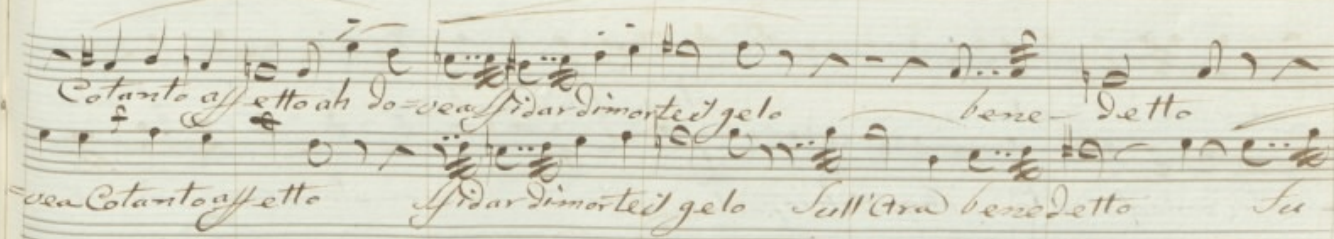 Cotanto affetto ah do=vea sfidar di morte il gelo bene - detto
=vea Cotanto affetto sfidar di morte il gelo Sull'Ara benedetto Su